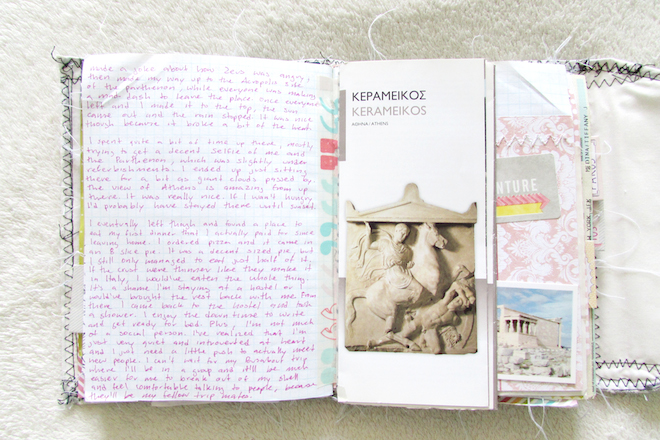 made a joke about how Zeus was angry,
then made my way up to the Acropolis side
of the parthenon, while everyone was making
a mad dash to leave the place since everyone
left and I made it to the top the sun
came out and the rain stopped. It was nice
though because it broke a bit of the heat.
I spent quite a bit of time up there, mostly
trying to get a decent selfie of me and
the Parthenon, which was slightly under
refurbishments. I ended up just sitting
there for a bit as giant clouds passed by
the view of Athens is amazing from up
there. It was really nice. If I wasn't hungry
I'd probably have stayed there until sunset.
I eventually left though and found a place to
eat my first dinner that I actually paid for since
leaving home. I ordered pizza and it came in
an 8 slice pie. It was a decent sized pie, but
I still only managed to eat just half of it.
If the crust were thinner like they make it
in Italy, I would've eaten the whole thing.
It's a shame I'm staying at a hostel or I
would've brought the rest back with me. From
there I came back to the hostel and took
a shower. I enjoy the down time to write
and get ready for bed. Plus, I'm not much
of a social person. I've realized that I'm
just very quiet and introverted at heart
and I just need a little push to actually meet
new people. I can't wait for my Busabout trip
where I'll be in a group and it'll be much
easier for me to break out of my shell
and feel comfortable talking to people, because
they'll be my fellow trip mates.
ΚΕΡΑΜΕΙΚΟΣ
KERAMEIKOS
ΑΘΗΝΑ / ATHENS
ENTURE